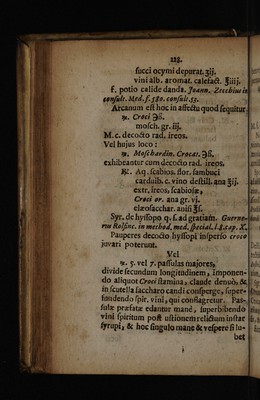 128.
succi ocymi depurat. ʒij.
vini alb. aromat. calefact. ℥iiij.
f. potio calide danda. Joann. Zecchius in
consult. Med. f. 580. consult. 55.
Arcanum est hoc in affectu quod sequitur
℞. Croci ℈ß.
mosch. gr. iij.
M. c. decocto rad. ireos.
Vel hujus loco :
℞. Moschardin. Crocat. ℈ß.
exhibeantur cum decocto rad. ireos.
℞. Aq. scabios. flor. sambuci
cardulb. c. vino destill. ana ℥ij.
extr. ireos, scabiosæ,
Croci or. ana gr. vj.
elæosacchar. anisi ʒſ.
Syr. de hyssopo q. s. ad gratiam. Guerne-
rus Rolfinc. in method. med. special. l. 8. cap. X.
Pauperes decocto hyssopi insperso croco
juvari poterunt.
Vel
℞. 5. vel 7. passulas majores,
divide secundum longitudinem, imponen-
do aliquot Croci stamina, claude denuò, &
in scutella saccharo candi consperge, super-
fundendo spir. vini, qui conflagretur. Pas-
sulæ præfatæ edantur mane, superbibendo
vini spiritum post ustionem relictum instar
syrupi, & hoc singulo mane & vespere si lu-
bet